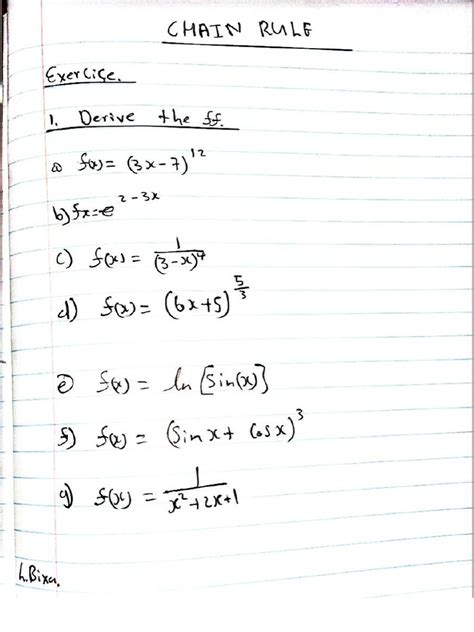 CHAIN RULE
Exercise.
1. Derive the ff.
a) f(x) = (3x-7)^12
b) fx = e^2-3x
c) f(x) = 1/(3-x)^4
d) f(x) = (6x+5)^5/3
e) f(x) = ln [sin(x)}
f) f(x) = (Sin x + Cos x)^3
g) f(x) = 1/x²+2x+1
h.Bixa.